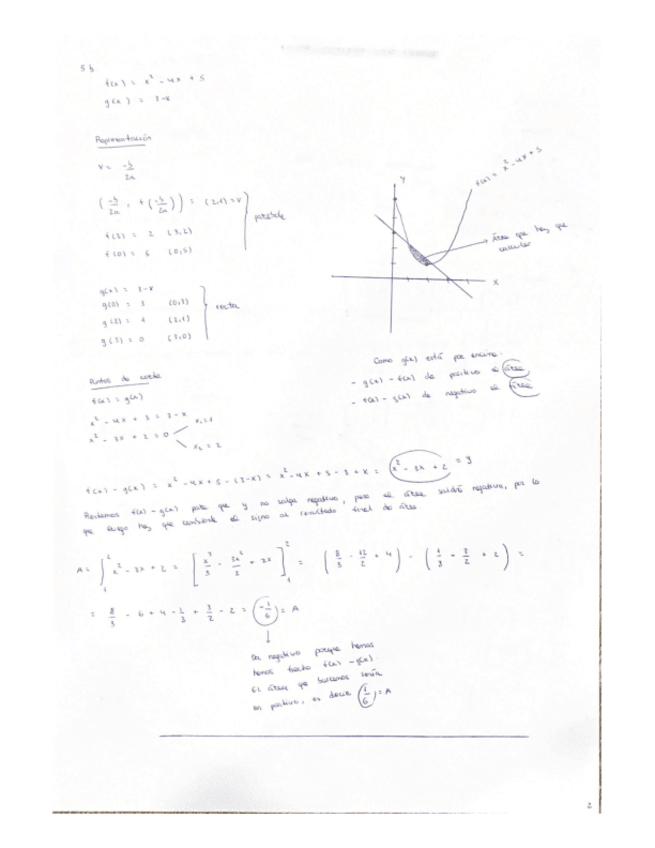 5b
f(x) = x² - 4x + 5
g(x) = 3-x
Representación
V = -b/2a
(-b/2a, f(-b/2a)) = (2,1) = V
f(3) = 2 (3,2)
f(0) = 5 (0,5)
parábola
g(x) = 3-x
g(0) = 3 (0,3)
g(2) = 1 (2,1)
g(3) = 0 (3,0)
recta
y
x
f(x) = x² - 4x + 5
Área que hay que
calcular
Como g(x) está por encima:
- g(x) - f(x) da positivo el área
- f(x) - g(x) da negativo el área
Puntos de corte
f(x) = g(x)
x² - 4x + 5 = 3-x
x² - 3x + 2 = 0
x₁ = 1
x₂ = 2
f(x) - g(x) = x² - 4x + 5 - (3-x) = x² - 4x + 5 - 3 + x = x² - 3x + 2 = y
f(x) - g(x) para que y no salga negativo, pero el área saldrá negativa, por lo
que luego hay que cambiarle el signo al resultado final do área
A = ∫₁² x² - 3x + 2 = [x³/3 - 3x²/2 + 2x]₁² = (8/3 - 12/2 + 4) - (1/3 - 3/2 + 2) =
= 8/3 - 6 + 4 - 1/3 + 3/2 - 2 = -1/6 = A
Da negativo porque hemos
hemos hecho f(x) - g(x).
El área que buscamos sería
en positivo, es decir 1/6 = A
2